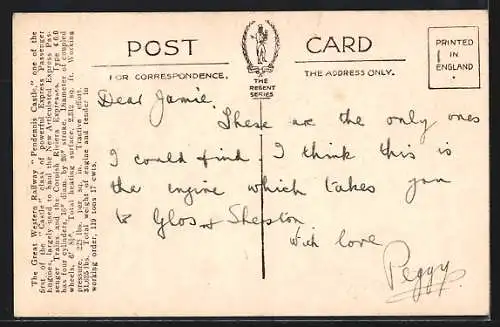 The Great Western Railway "Pendennis Castle," one of the
first of the "Castle" class of powerful Express Passenger
Engines, largely used to haul the New Articulated Express Pas-
senger Trains and the Cornish Riviera Expresses. Type 4-6-0
has four cylinders, 16" diam. by 26" stroke. Diameter of coupled
wheels, 6' 8½". Total heating surface, 2,312 sq. ft. Working
pressure, 225 lbs. per sq. in. Tractive effort,
31,625 lbs. Total weight of engine and tender in
working order, 119 tons 17 cwts.
POST CARD
FOR CORRESPONDENCE.
THE ADDRESS ONLY.
THE
REGENT
SERIES
PRINTED
IN
ENGLAND
Dear Jamie.
These are the only ones
I could find I think this is
the engine which takes you
to Glos & Shepton
With love
Peggy